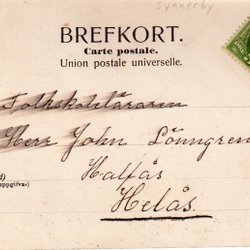 Synnerby
BREFKORT.
Carte postale.
Union postale universelle.
Folkskoleläraren
Herr John Lönngren
Hallfås
Helås.